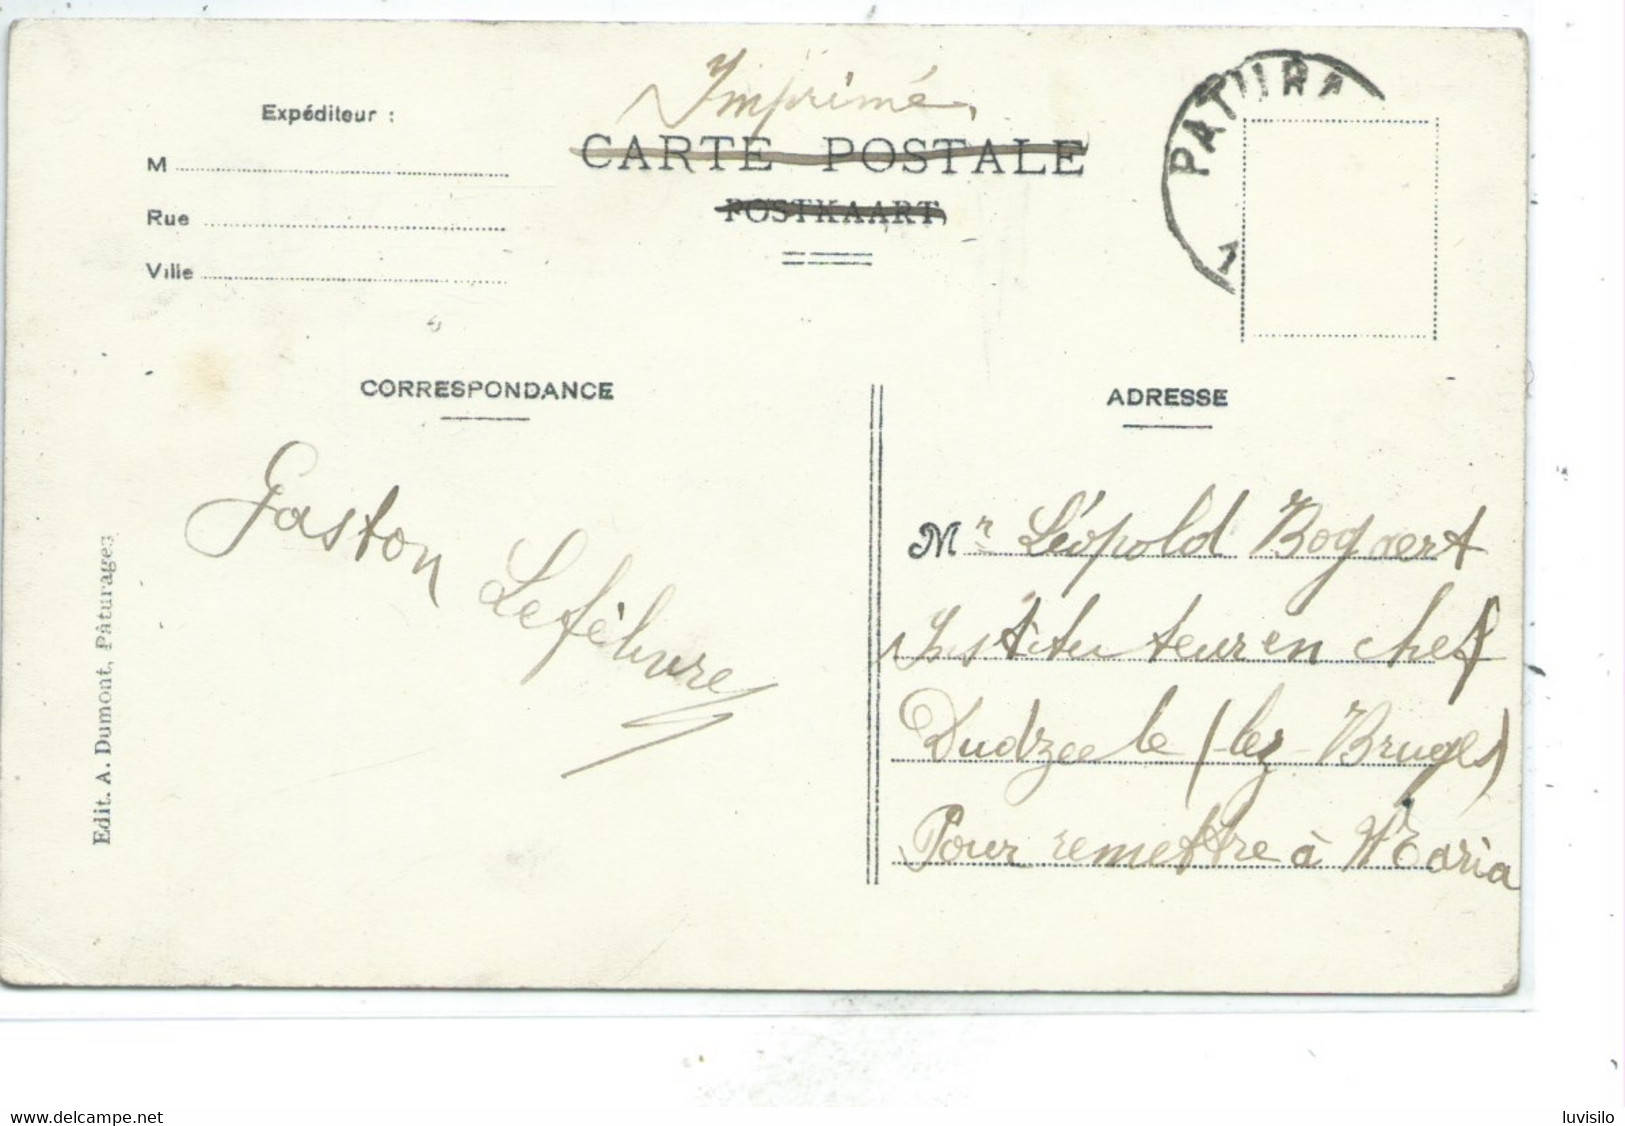 Imprimé
CARTE POSTALE
POSTKAART
PATURA
1
Expéditeur :
M
Rue
Ville
CORRESPONDANCE
Gaston
Lefèbvre
Edit. A. Dumont, Pâturages
ADRESSE
Mr Léopold Bogaert
Instituteur en chef
Dudzeele (-lez-Bruges)
Pour remettre à Maria
www.delcampe.net
luvisilo